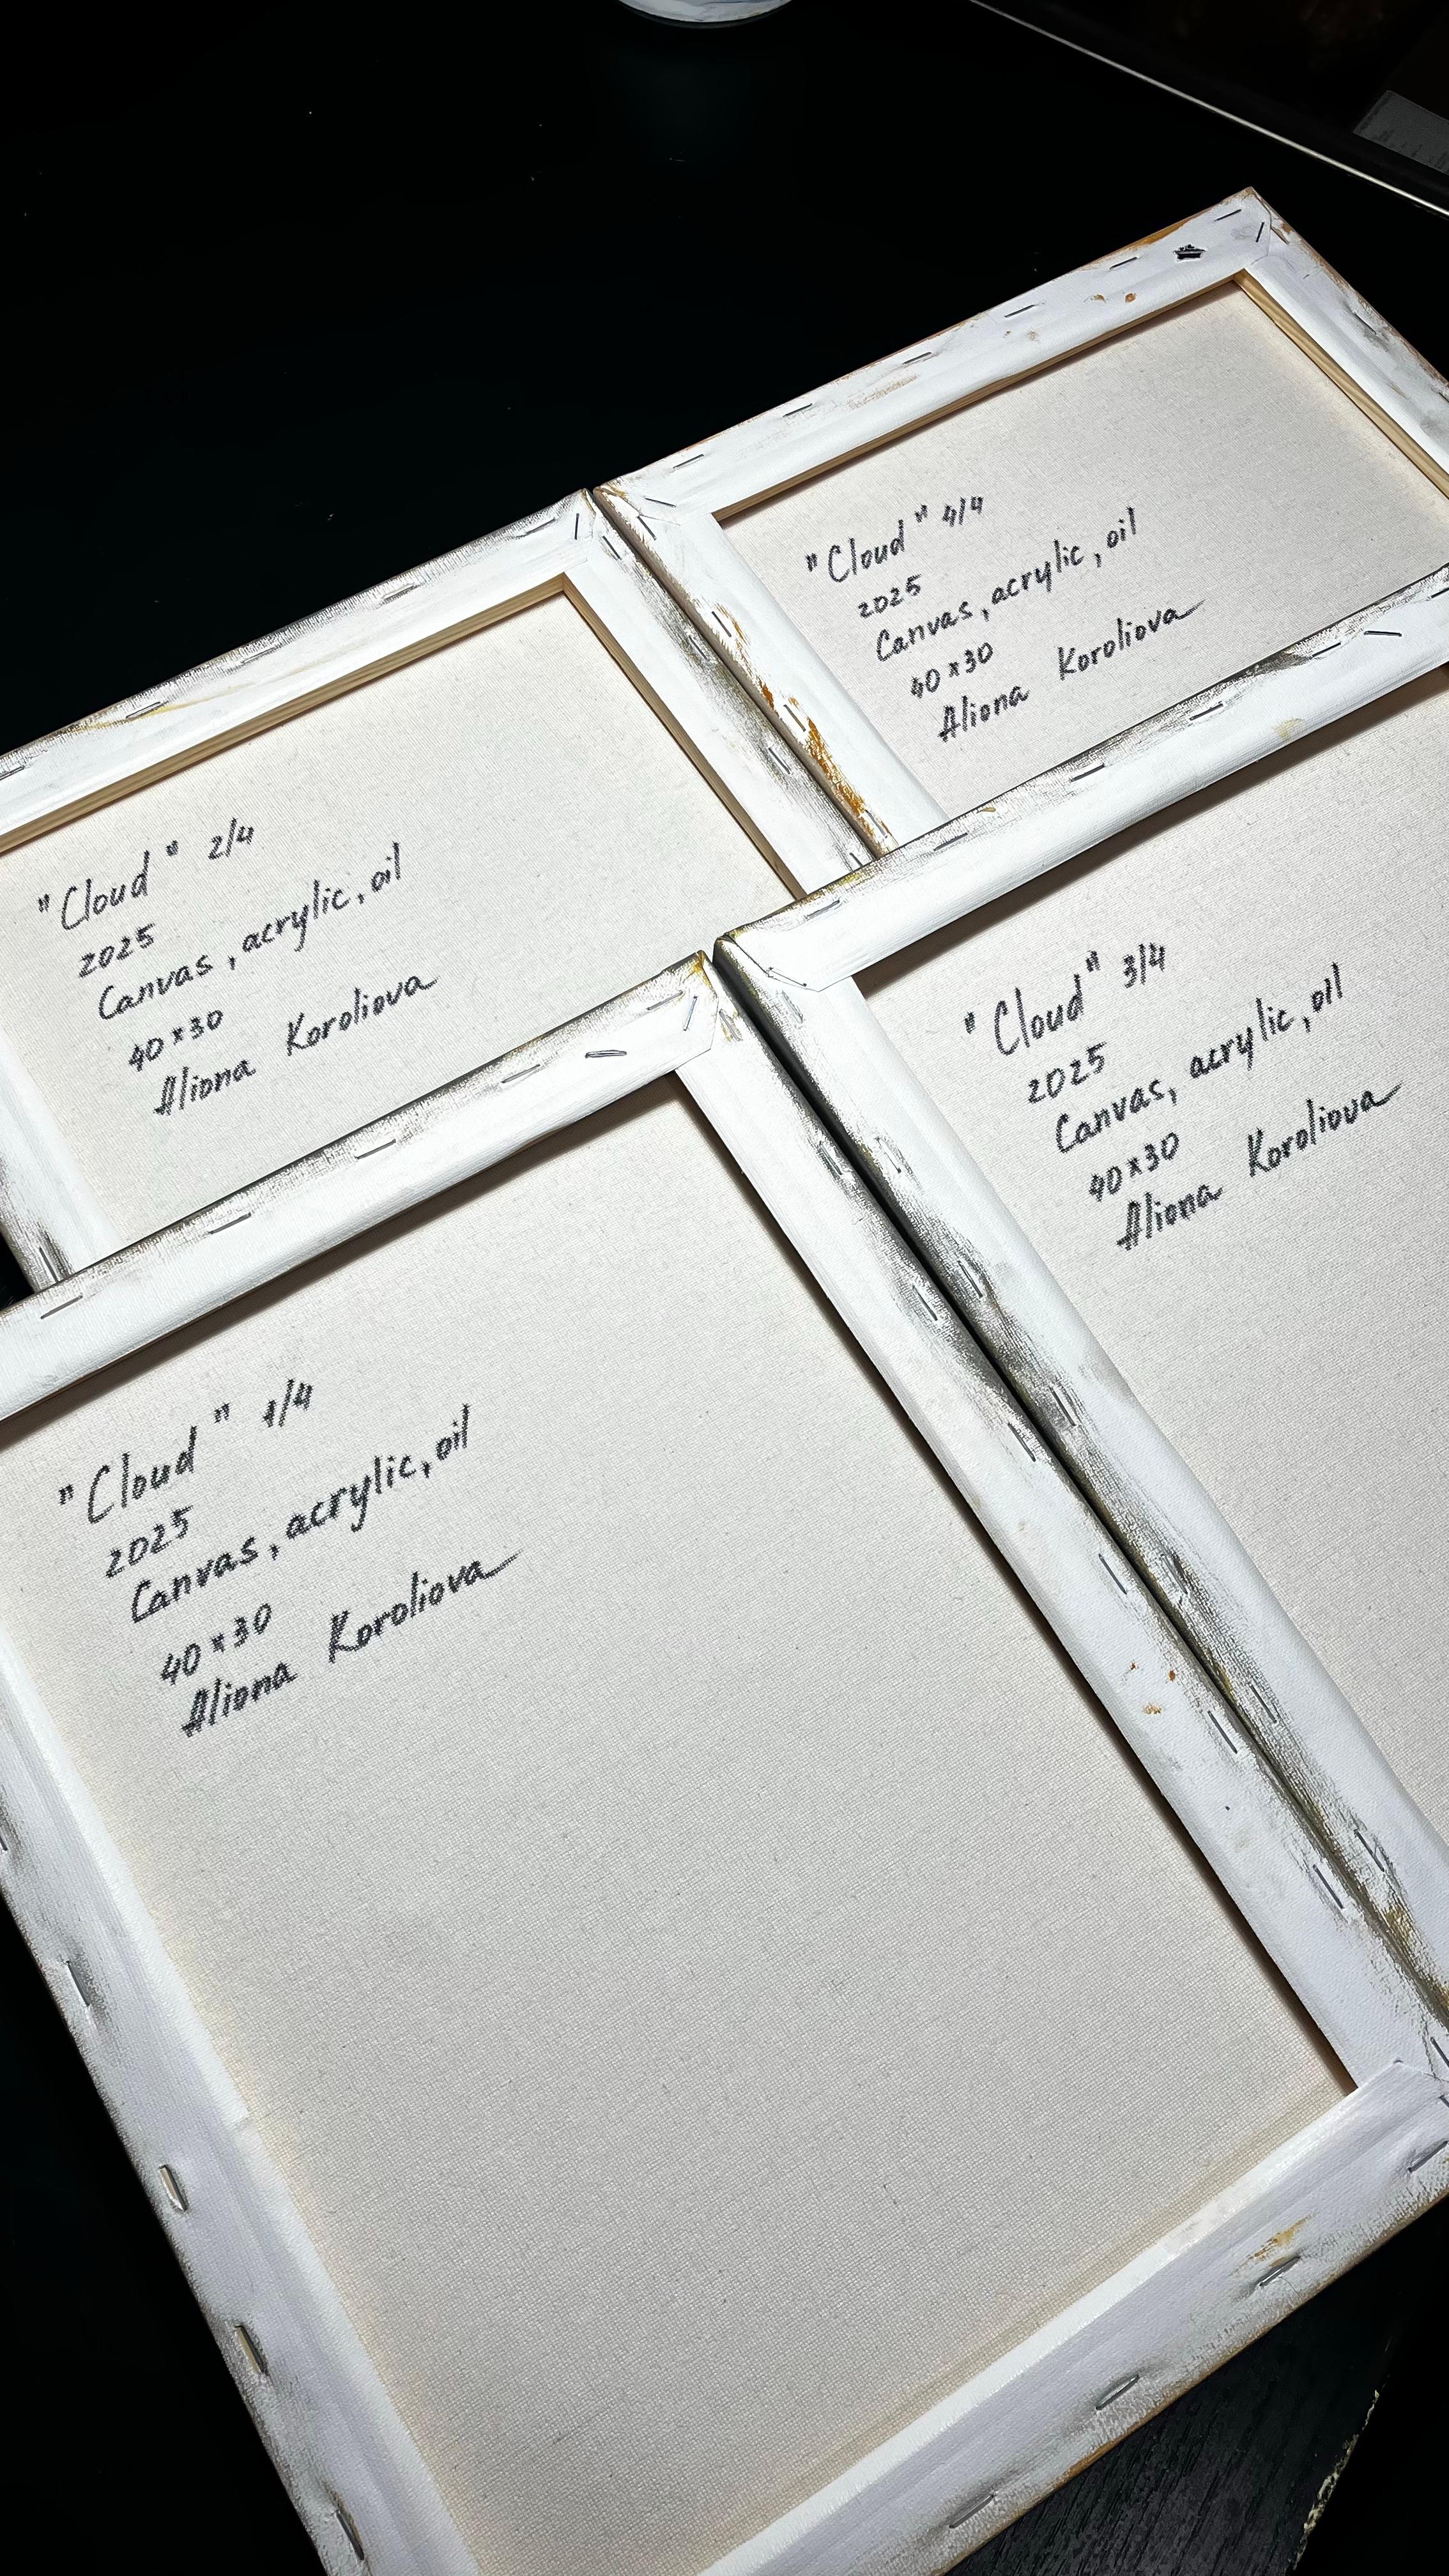 "Cloud" 4/4
2025
Canvas, acrylic, oil
40x30
Aliona Koroliova
"Cloud" 2/4
2025
Canvas, acrylic, oil
40x30
Aliona Koroliova
"Cloud" 3/4
2025
Canvas, acrylic, oil
40x30
Aliona Koroliova
"Cloud" 1/4
2025
Canvas, acrylic, oil
40x30
Aliona Koroliova